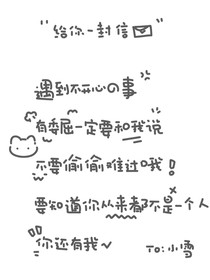 "给你一封信✉"
遇到不开心の事
有委屈一定要和我说
不要偷偷难过哦!
要知道你从来都不是一个人
你还有我~
TO:小雪